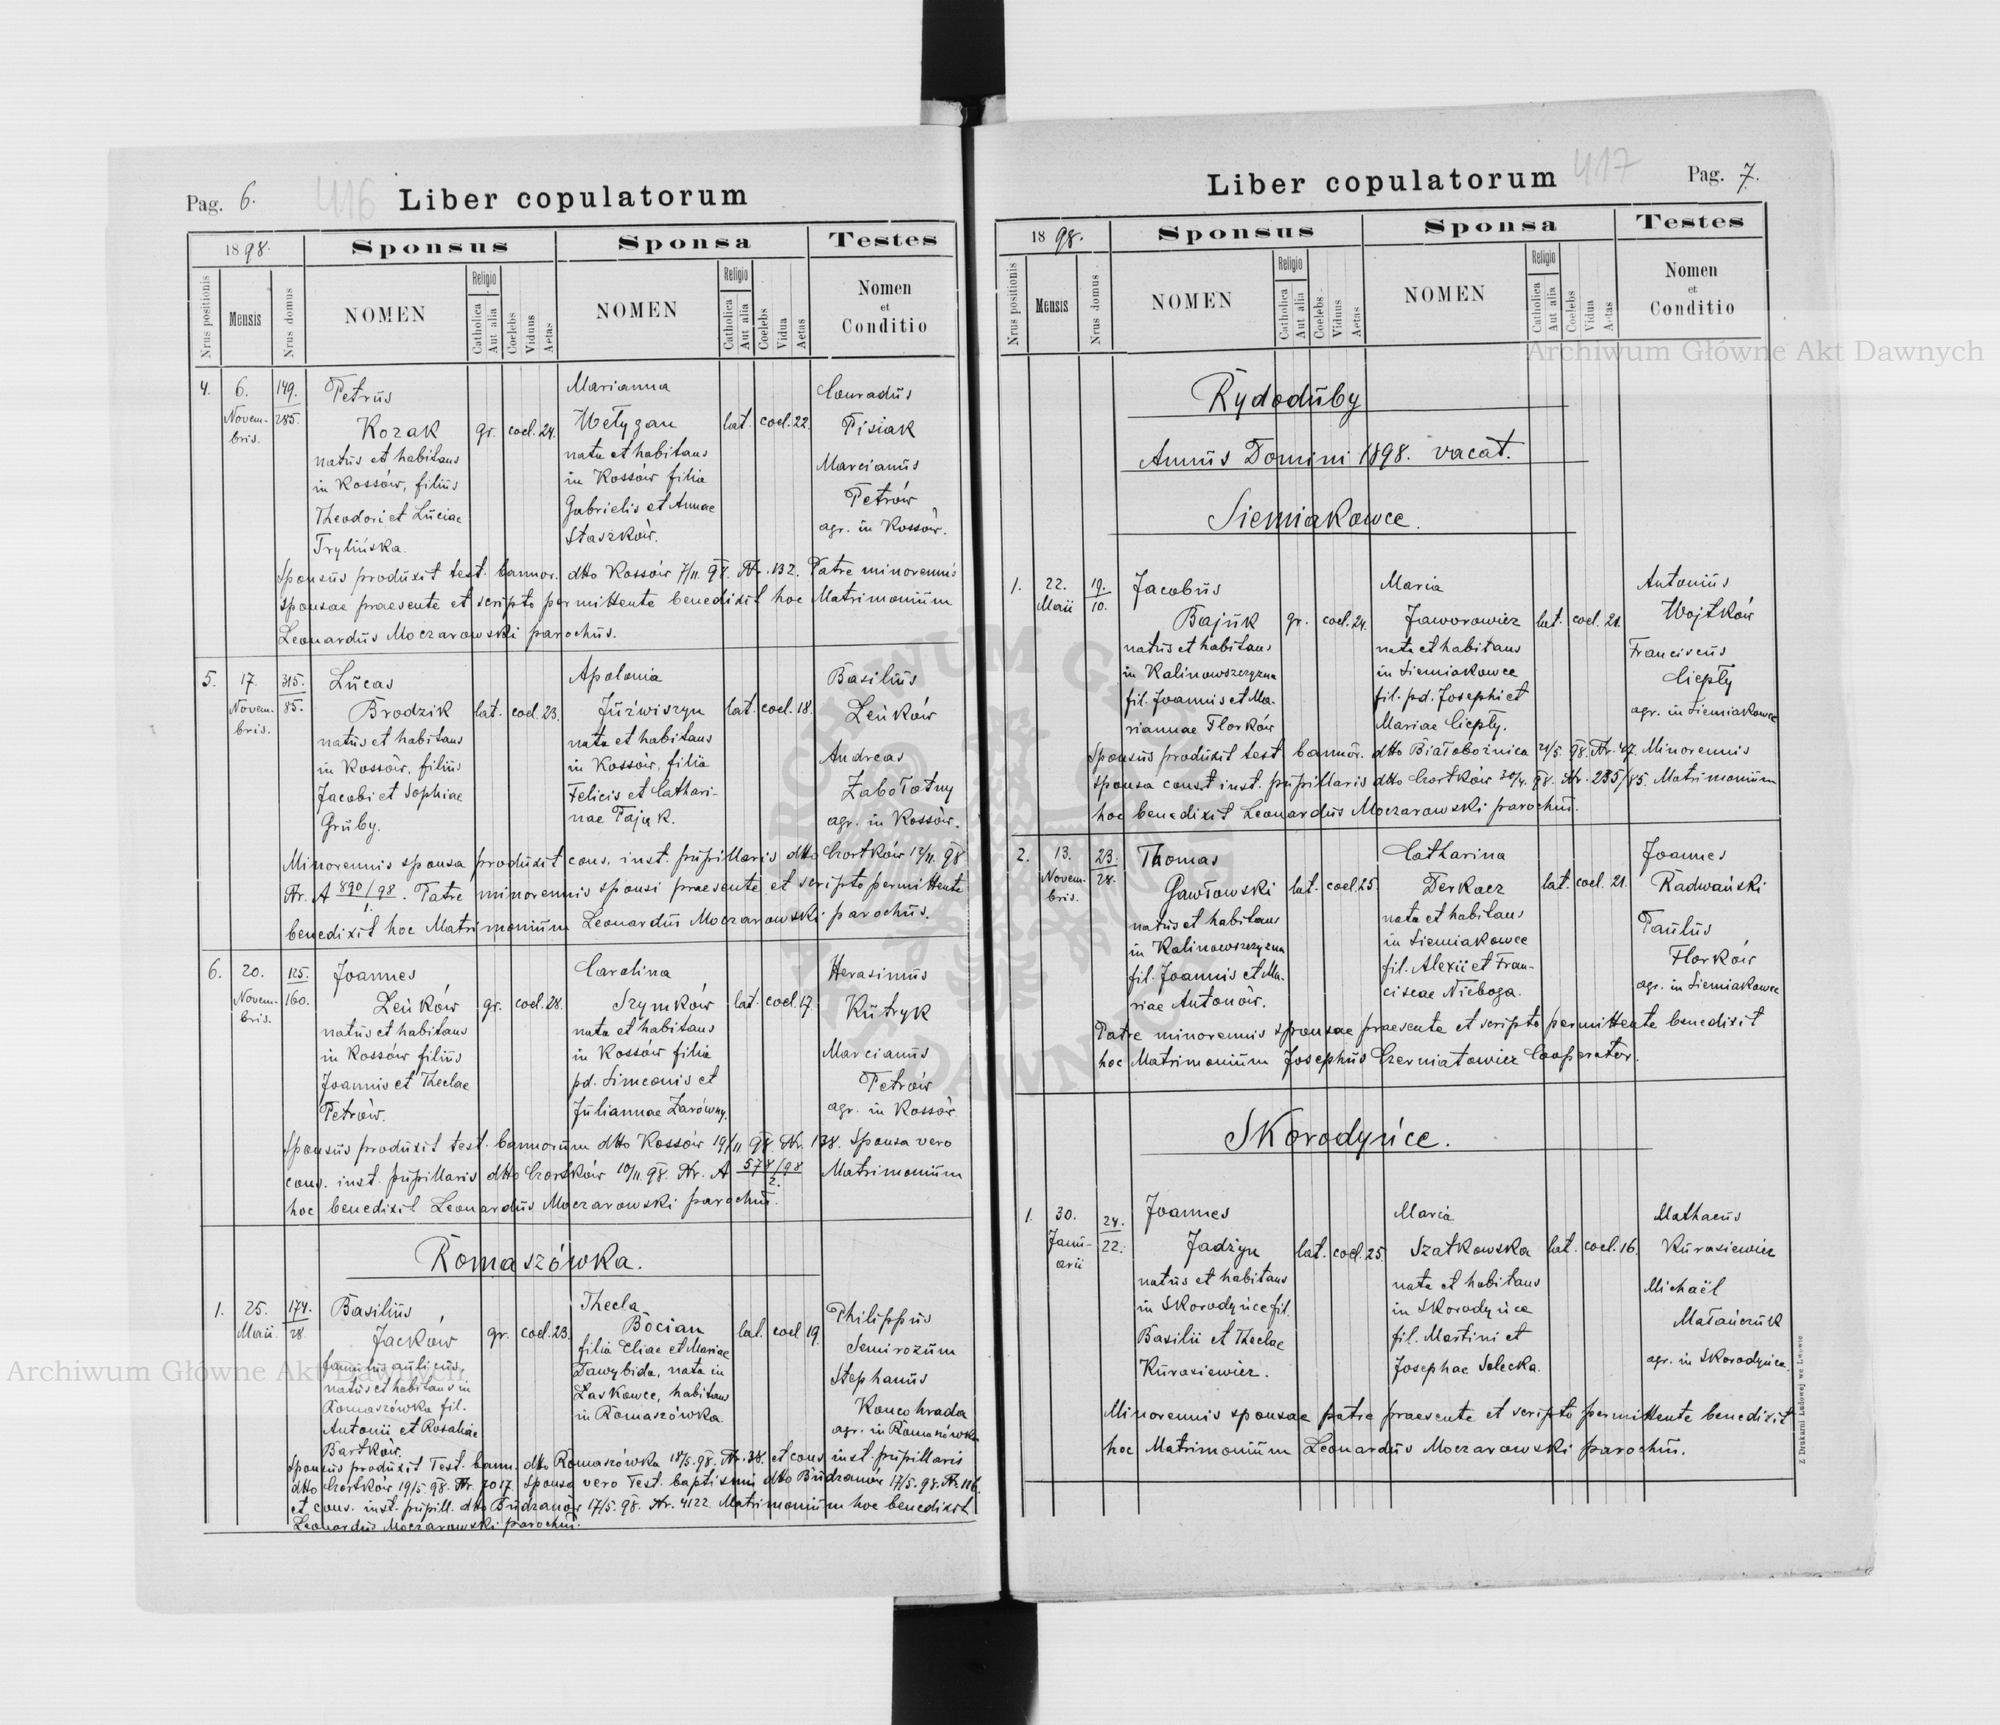 Pag. 6. 416 Liber copulatorum
1898. Sponsus Sponsa Testes
Nrus positionis Mensis Nrus domus NOMEN Religio Catholica Aut alia Coelebs Viduus Aetas NOMEN Religio Catholica Aut alia Coelebs Vidua Aetas Nomen et Conditio
4. 6. 149. Petrus Marianna Conradus
Novem- 285. Kozak gr. coel. 24. Wełygan lat. coel. 22. Pisiak
bris. natus et habitans nata et habitans Marcianus
in Kossów, filius in Kossów filia Petrów
Theodori et Luciae Gabrielis et Annae agr. in Kossów.
Trylińska. Staszków.
Sponsus produxit test. bannor. dtto Kossów 7/11. 98. Nr. 132. Patre minorennis
sponsae praesente et scripto permittente benedixit hoc Matrimonium
Leonardus Moczarowski parochus.
5. 17. 315. Lucas Apolonia Basilius
Novem- 85. Brodzik lat. coel. 23. Juźwiszyn lat. coel. 18. Leńków
bris. natus et habitans nata et habitans Andreas
in Kossów, filius in Kossów, filia Zabołotny
Jacobi et Sophiae Felicis et Cathari- agr. in Kossów.
Gruby. nae Pająk.
Minorennis sponsa produxit cons. inst. pupillaris dtto Czortków 12/11. 98
Nr. A 890/98 1. Patre minorennis sponsi praesente et scripto permittente
benedixit hoc Matrimonium Leonardus Moczarowski parochus.
6. 20. 125. Joannes Carolina Herasimus
Novem- 160. Leńków gr. coel. 28. Szymków lat. coel. 17. Kutryk
bris. natus et habitans nata et habitans Marcianus
in Kossów filius in Kossów filia Petrów
Joannis et Theclae pd. Simeonis et agr. in Kossów.
Petrów. Juliannae Zarówny.
Sponsus produxit test. bannorum dtto Kossów 19/11 98 Nr. 138. Sponsa vero
cons. inst. pupillaris dtto Czortków 10/11. 98. Nr. A 578/98 2. Matrimonium
hoc benedixit Leonardus Moczarowski parochus.
Romaszówka.
1. 25. 174. Basilius Thecla Philippus
Maii 28. Jacków gr. coel. 23. Bocian lat. coel 19. Semirozum
famulus aulicus, filia Eliae et Mariae Stephanus
natus et habitans in Dawybida, nata in Koncohrada
Romaszówka fil. Laskowce, habitans agr. in Romaszówka
Antonii et Rosaliae in Romaszówka
Bartków.
Sponsus produxit Test. bann. dtto Romaszówka 18/5. 98. Nr. 38. et cons. inst. pupillaris
dtto Czortków 19/5. 98. Nr. 7017. Sponsa vero Test. baptismi dtto Budzanów 17/5. 98. Nr. 116.
et cons. inst. pupill. dtto Budzanów 17/5. 98. Nr. 4122. Matrimonium hoc benedixit
Leonardus Moczarowski parochus.
Liber copulatorum 417 Pag. 7.
1898. Sponsus Sponsa Testes
Nrus positionis Mensis Nrus domus NOMEN Religio Catholica Aut alia Coelebs Viduus Aetas NOMEN Religio Catholica Aut alia Coelebs Vidua Aetas Nomen et Conditio
Rydoduby
Annus Domini 1898. vacat.
Siemiakowce.
1. 22. 19. Jacobus Maria Antonius
Maii 10. Bajuk gr. coel. 24. Jaworowicz lat. coel. 21. Wojtków
natus et habitans nata et habitans Franciscus
in Kalinowszczyzna in Siemiakowce Ciepły
fil. Joannis et Ma- fil. pd. Josephi et agr. in Siemiakowce
riannae Florków Mariae Ciepły.
Sponsus produxit test bannor. dtto Białobożnica 21/5. 98. Nr. 47. Minorennis
sponsa const inst. pupillaris dtto Czortków 30/4. 98. Nr. 235/85. Matrimonium
hoc benedixit Leonardus Moczarowski parochus.
2. 13. 23. Thomas Catharina Joannes
Novem- 28. Gawłowski lat. coel. 25. Derkacz lat. coel. 21. Radwański
bris. natus et habitans nata et habitans Paulus
in Kalinowszczyzna in Siemiakowce Florków
fil. Joannis et Ma- fil. Alexii et Fran- agr. in Siemiakowce
riae Antonów. ciscae Nieboga.
Patre minorennis sponsae praesente et scripto permittente benedixit
hoc Matrimonium Josephus Czerniatowicz Cooperator.
Skorodyńce.
1. 30. 24. Joannes Maria Mathaeus
Janu- 22. Jadżyn lat. coel. 25. Szatkowska lat. coel. 16. Kurasiewicz
arii natus et habitans nata et habitans Michaël
in Skorodyńce fil. in Skorodyńce Matańczuk
Basilii et Theclae fil. Martini et agr. in Skorodyńce.
Kurasiewicz. Josephae Solecka.
Minorennis sponsae patre praesente et scripto permittente benedixit
hoc Matrimonium Leonardus Moczarowski parochus.
Z Drukarni Ludowej we Lwowie
Archiwum Główne Akt Dawnych
Archiwum Główne Akt Dawnych
ARCHIWUM GŁÓWNE AKT DAWNYCH